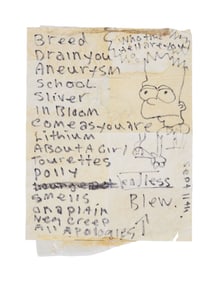 Breed
Drain you
Aneurysm
School
Sliver
in Bloom
come as you are
Lithium
About A Girl
Tourettes
polly
Lounge act
endless
smells
on a plain
Neg creep
All Apologies
Blew.
Who the
hell are you